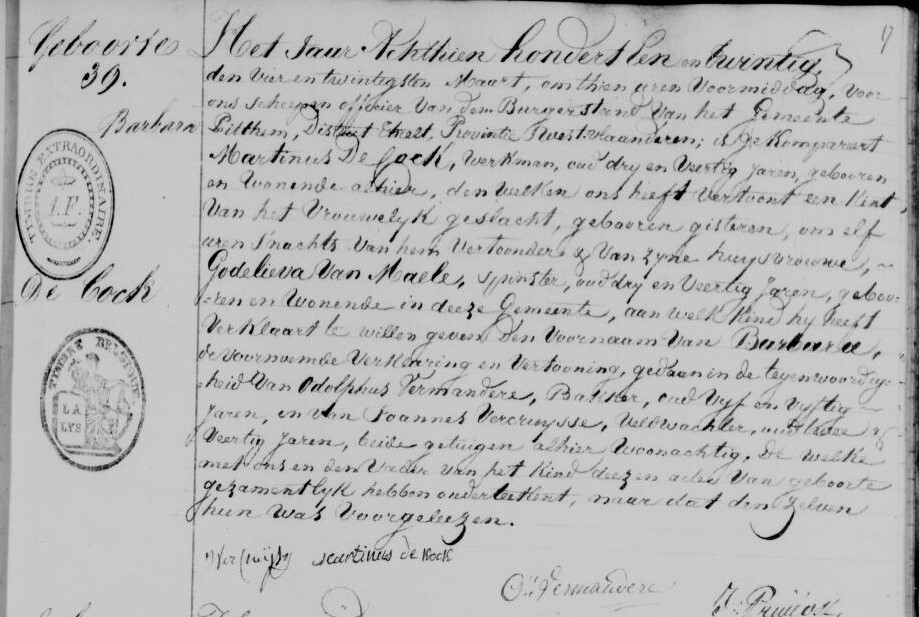 17
Geboorte
39.
Barbara
De Cock
TIMBRE EXTRAORDINAIRE.
1.F.
TIMBRE
LA
LYS
Het Jaar Achthien honderst Een en twintig
den vier en twintigsten Maart, om thien uren Voormiddag, Voor
ons schepen officier Van dem Burgerstand Van het Gemeente
Pitthem, District Thielt, Provintie Westvlaanderen; is gekompareert
Martinus De Cock, werkman, oud dry en Veertig Jaren, gebooren
en Wonende alhier, den welken ons heeft Vertoont een Kint,
Van het Vrouwelyk geslacht, gebooren gisteren, om elf
uren S'nachts Van hem Vertoonder & Van zyne huysvrouwe,
Godelieva Van Maele, spinster, oud dry en Veertig Jaren, geboo-
=ren en Wonende in deeze Gemeente, aan welk kind hy heeft
Verklaart te willen geven Den Voornaam Van Barbara,
de voornoemde Verklaring en Vertooning, gedaan in de tegenwoordig-
=heid Van Adolphus Vermandere, Bakker, oud Vyf en Vyftig
Jaren, en van Joannes Vercruysse, Veldwachter, oud twee &
Veertig Jaren, beide getuigen alhier Woonachtig, De welke
met ons en den Vader van het Kind deezen acte Van geboorte
gezamentlyk hebben onderteekent, naer dat den zelven
hun was Voorgeleezen.
martinus de kock
Vermandere